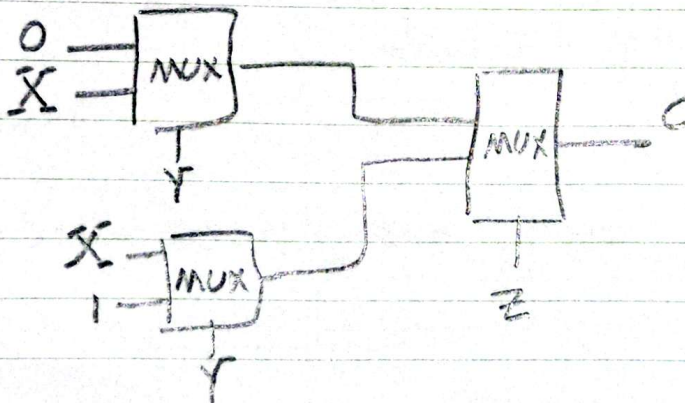 0
X
MUX
Y
MUX
C
Z
X
1
MUX
Y